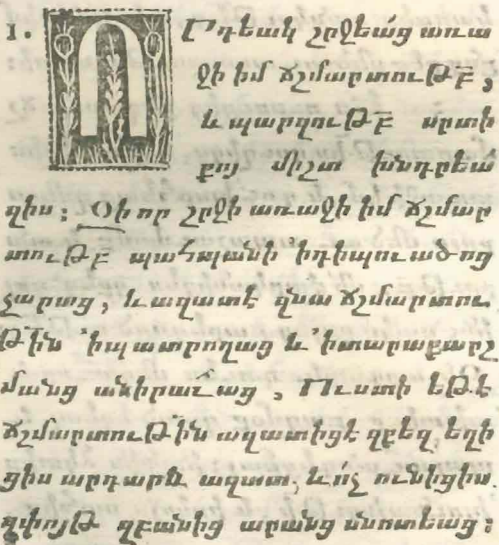 1. ՈՐդեակ շրջեա՛ց առա
ջի իմ ճշմարտութբ,
և պարզութբ սրտի
քոյ միշտ խնդրեա՛
զիս։ Զի որ շրջի առաջի իմ ճշմար
տութբ պահպանի ՚իդիպուածոց
չարաց, և ազատէ զնա ճշմարտու
թի՜ն ՚իպատրողաց և ՚իտարաքարշ
մանց անիրաւաց. Ուստի եթէ
ճշմարտութի՜ն ազատիցէ զքեզ, եղի
ցիս արդարև ազատ, և ո՛չ ունիցիս
զփոյթ զբանից արանց սնոտեաց։